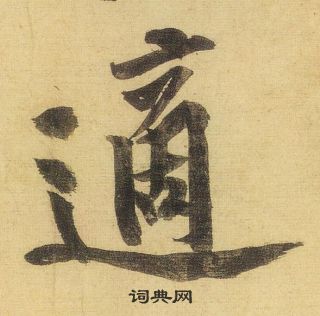 適
词典网